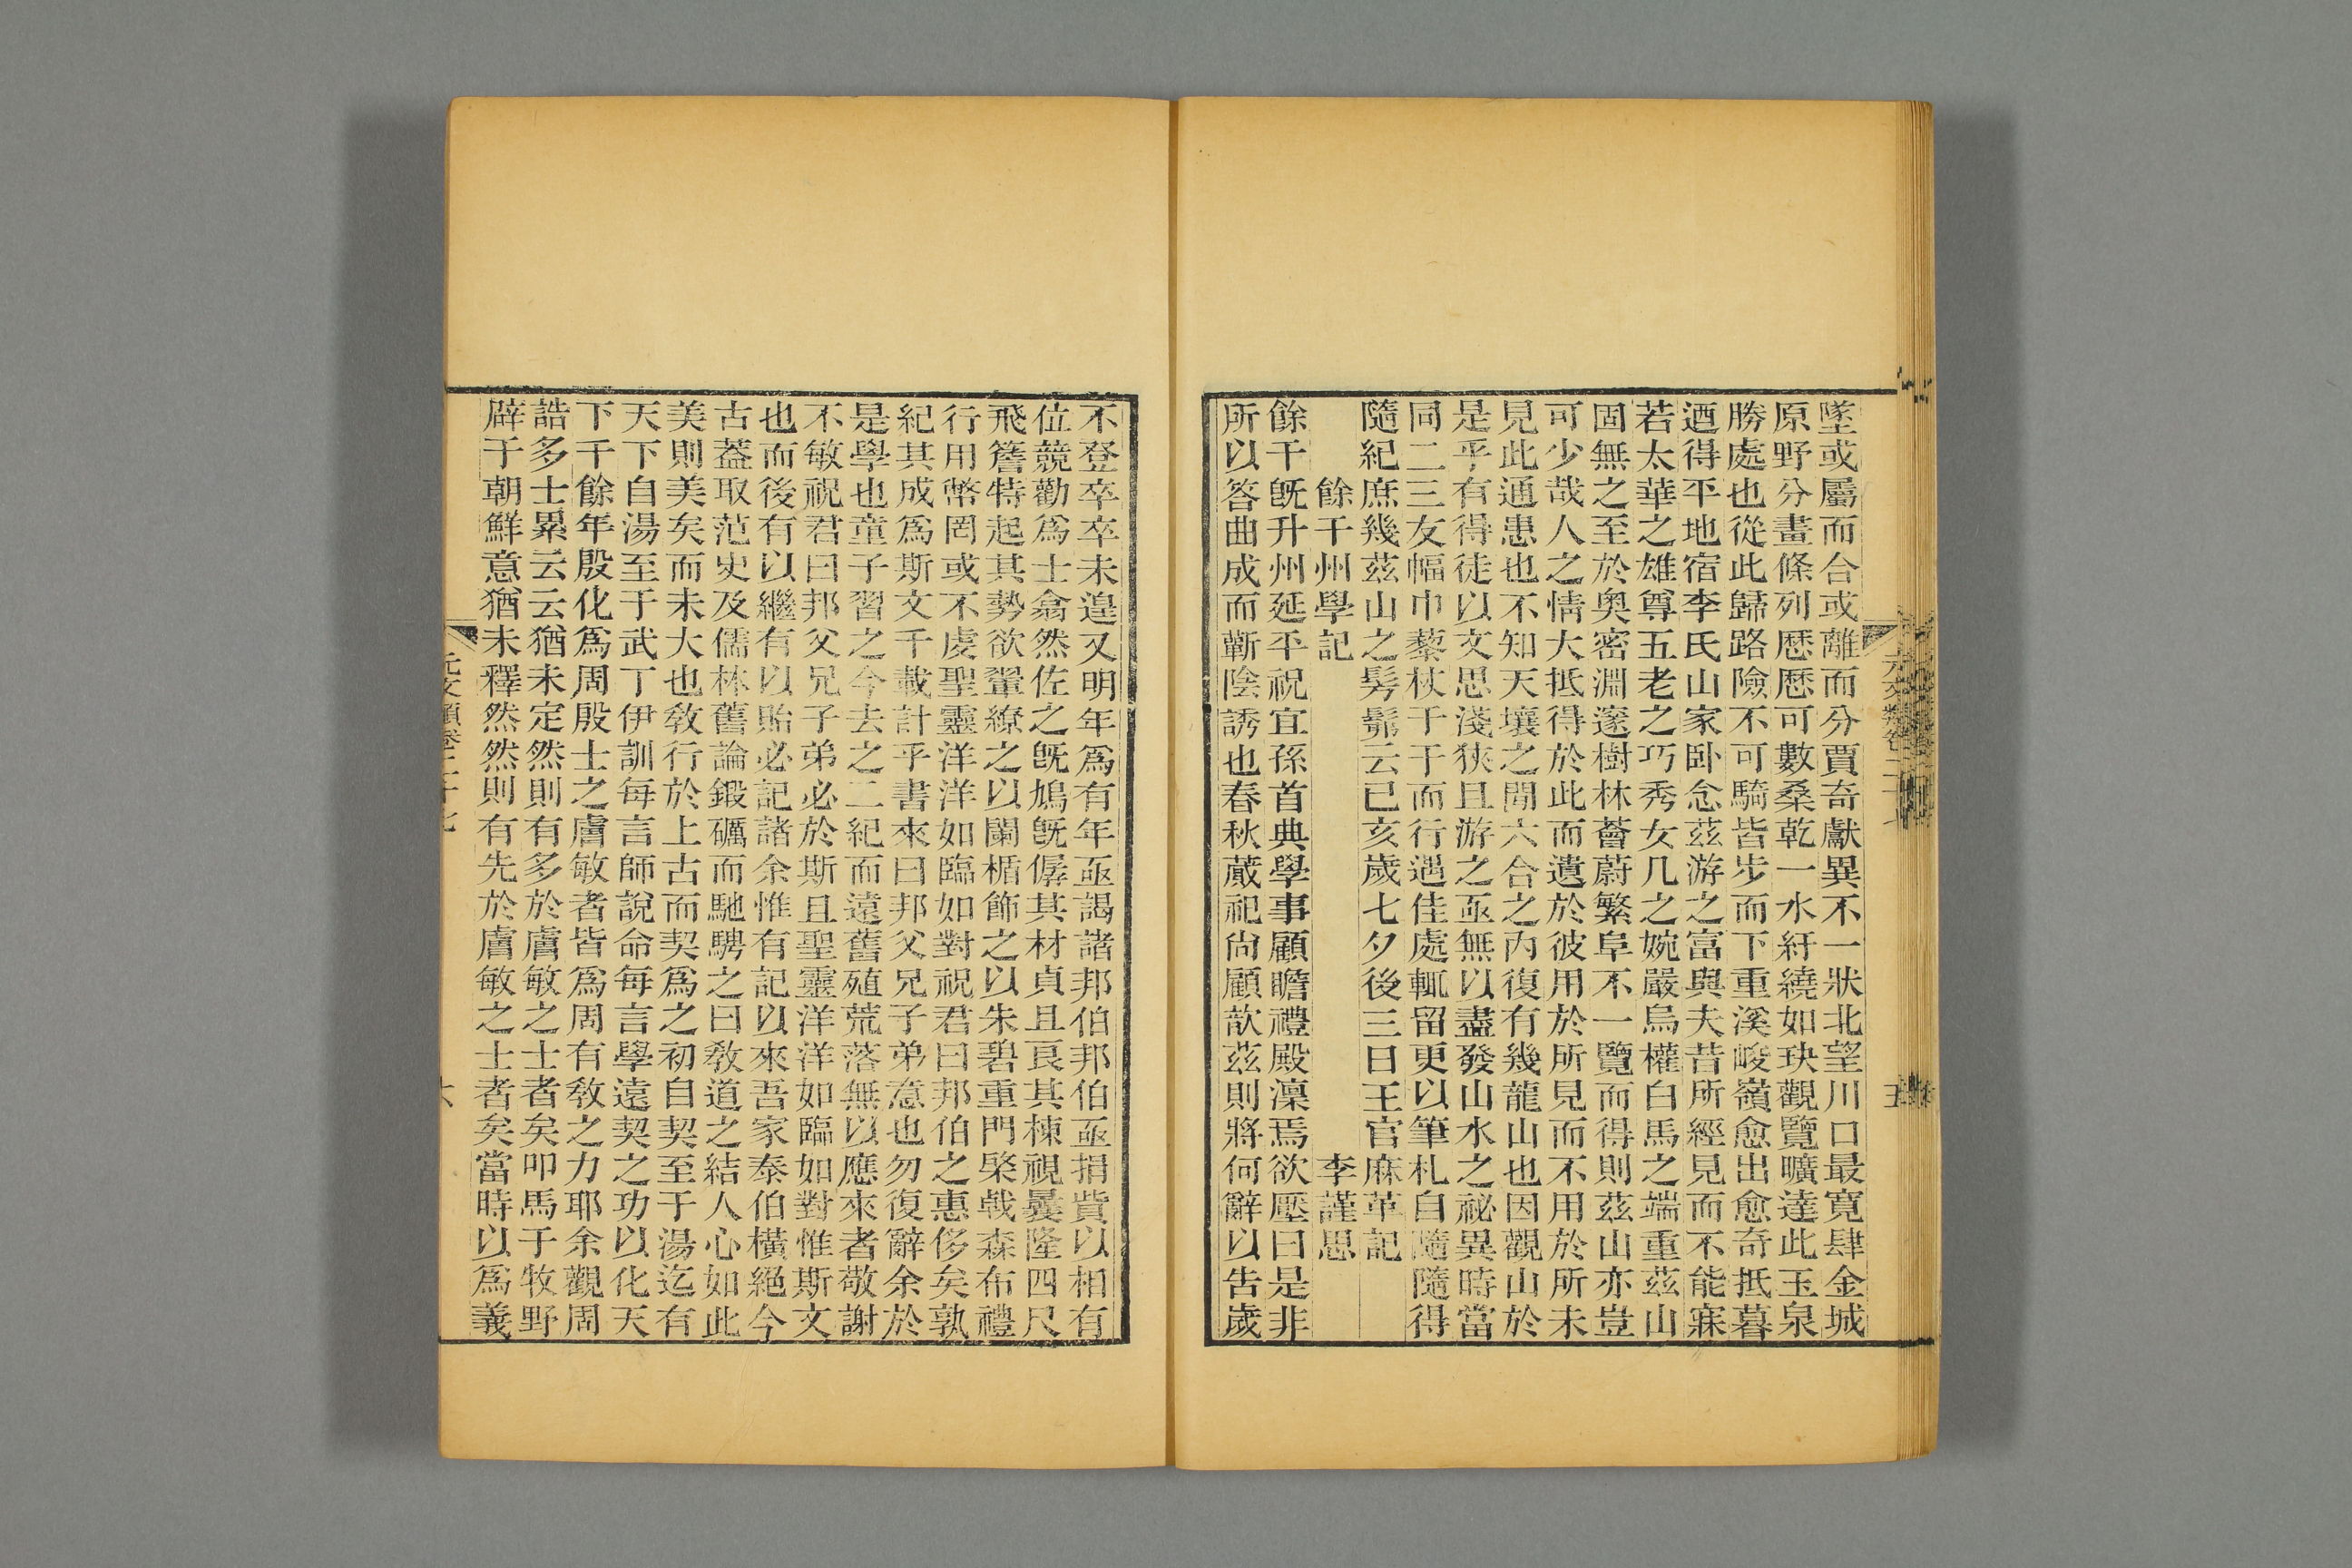 墜或屬而合或離而分賈奇獻異不一狀北望川口最寬肆金城
原野分畫條列歷歷可數桑乾一水紆繞如玦觀覽曠達此玉泉
勝處也從此歸路險不可騎皆步而下重溪峻嶺愈出愈奇抵暮
迺得平地宿李氏山家卧念茲游之富與夫昔所經見而不能寐
若太華之雄尊五老之巧秀女几之婉嚴烏權白馬之端重茲山
固無之至於奧密淵邃樹林薈蔚繁阜不一覽而得則茲山亦豈
可少哉人之情大抵得於此而遺於彼用於所見而不用於所未
見此通患也不知天壤之間六合之內復有幾龍山也因觀山於
是乎有得徒以文思淺狹且游之亟無以盡發山水之祕異時當
同二三友幅巾藜杖于于而行遇佳處輒留更以筆札自隨隨得
隨紀庶幾茲山之髣髴云已亥歲七夕後三日王官麻革記
餘干州學記 李謹思
餘干旣升州延平祝宜孫首典學事顧瞻禮殿凜焉欲壓曰是非
所以答曲成而蘄陰誘也春秋蕆祀尙顧歆茲則將何辭以吿歲
元文類卷二十七
五
不登卒卒未遑又明年爲有年亟謁諸邦伯邦伯亟捐貲以相有
位競勸爲士翕然佐之旣鳩旣僝其材貞且良其棟視曩隆四尺
飛簷特起其勢欲翬繚之以闌楯飾之以朱碧重門棨戟森布禮
行用幣罔或不虔聖靈洋洋如臨如對祝君曰邦伯之惠侈矣孰
紀其成爲斯文千載計乎書來曰邦父兄子弟意也勿復辭余於
是學也童子習之今去之二紀而遠舊殖荒落無以應來者敬謝
不敏祝君曰邦父兄子弟必於斯且聖靈洋洋如臨如對惟斯文
也而後有以繼有以貽必記諸余惟有記以來吾家泰伯橫絕今
古蓋取范史及儒林舊論鍛礪而馳騁之曰敎道之結人心如此
美則美矣而未大也敎行於上古而契爲之初自契至于湯迄有
天下自湯至于武丁伊訓每言師說命每言學遠契之功以化天
下千餘年殷化爲周殷士之膚敏者皆爲周有敎之力耶余觀周
誥多士累云云猶未定然則有多於膚敏之士者矣叩馬于牧野
辟于朝鮮意猶未釋然然則有先於膚敏之士者矣當時以爲義
元文類卷二十七
六